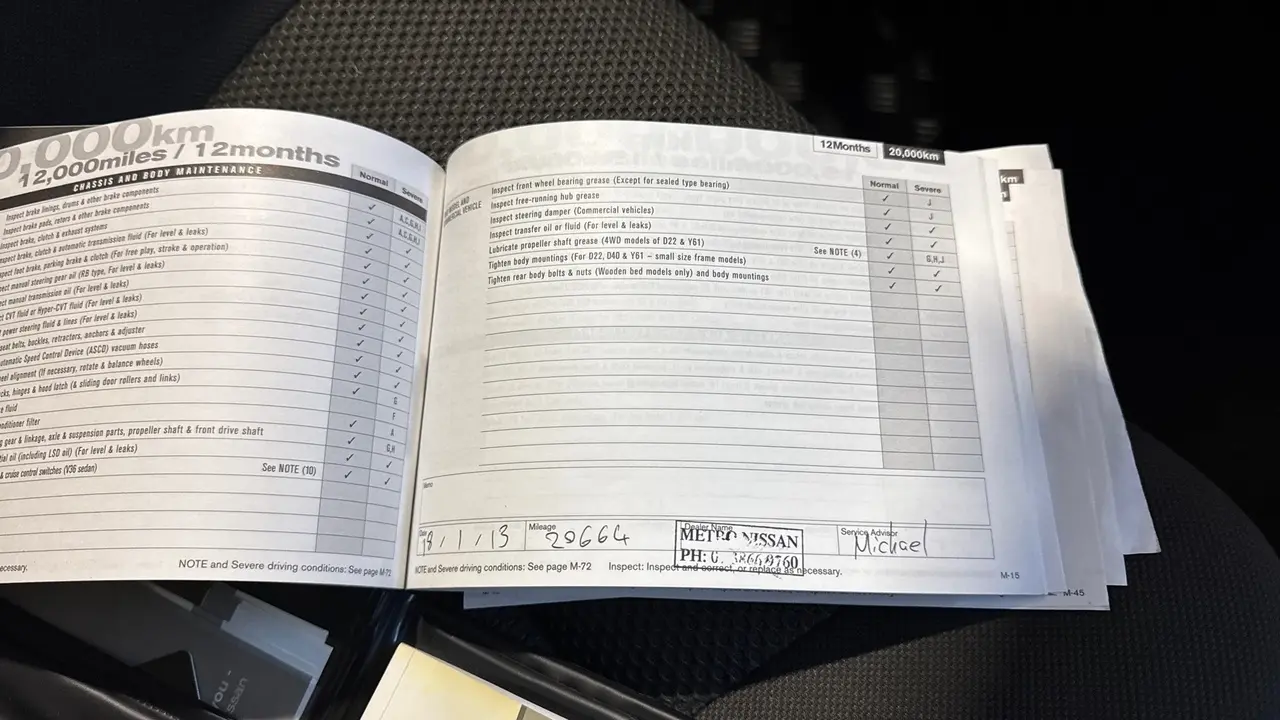 0,000km
12,000miles / 12months
CHASSIS AND BODY MAINTENANCE
Normal
Severe
Inspect brake linings, drums & other brake components
✓
A,C,G,H,I
Inspect brake pads, rotors & other brake components
✓
A,C,G,H,I
Inspect brake, clutch & exhaust systems
✓ ✓
pect brake, clutch & automatic transmission fluid (For level & leaks)
✓ ✓
pect foot brake, parking brake & clutch (For free play, stroke & operation)
✓ ✓
ect manual steering gear oil (RB type, For level & leaks)
✓ ✓
ect manual transmission oil (For level & leaks)
✓ ✓
ct CVT fluid or Hyper-CVT fluid (For level & leaks)
✓ ✓
power steering fluid & lines (For level & leaks)
✓ ✓
eat belts, buckles, retractors, anchors & adjuster
✓ ✓
utomatic Speed Control Device (ASCD) vacuum hoses
✓ ✓
eel alignment (If necessary, rotate & balance wheels)
✓ ✓
cks, hinges & hood latch (& sliding door rollers and links)
✓
G
e fluid
F
nditioner filter
✓ A
g gear & linkage, axle & suspension parts, propeller shaft & front drive shaft
✓ G,H
tial oil (including LSD oil) (For level & leaks)
✓ ✓
& cruise control switches (V36 sedan) See NOTE (10)
✓ ✓
ecessary. NOTE and Severe driving conditions: See page M-72
12Months 20,000km
Normal Severe
Inspect front wheel bearing grease (Except for sealed type bearing) ✓ J
Inspect free-running hub grease ✓ J
Inspect steering damper (Commercial vehicles) ✓ ✓
Inspect transfer oil or fluid (For level & leaks) ✓ ✓
Lubricate propeller shaft grease (4WD models of D22 & Y61) See NOTE (4) ✓ G,H,J
Tighten body mountings (For D22, D40 & Y61 – small size frame models) ✓ ✓
Tighten rear body bolts & nuts (Wooden bed models only) and body mountings ✓ ✓
Memo
Date 18/1/13 Mileage 20664 Dealer Name METRO NISSAN Service Advisor Michael
PH:
NOTE and Severe driving conditions: See page M-72 Inspect: Inspect and correct, or replace as necessary.
M-15
M-45
km